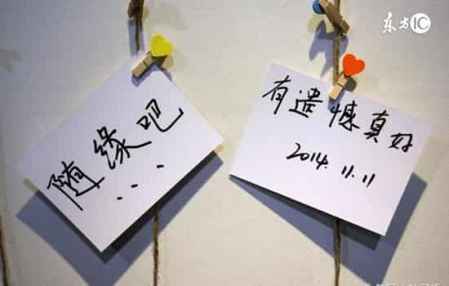 东方IC
随缘吧
...
有遗憾真好
2014.11.11